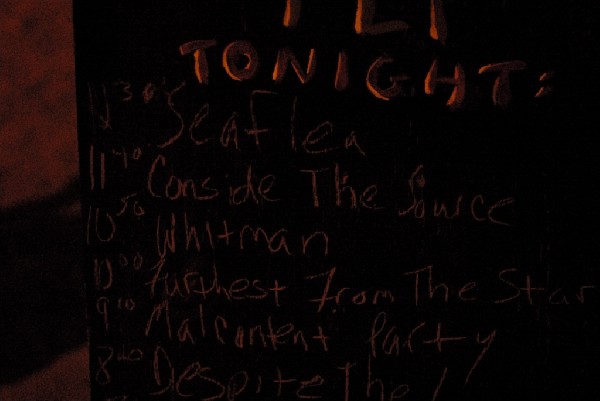 TONIGHT:
Seaflea
11 40 Conside The Source
10 50 Whitman
10 00 Furthest From The Star
9 10 Malcontent Party
Despite The